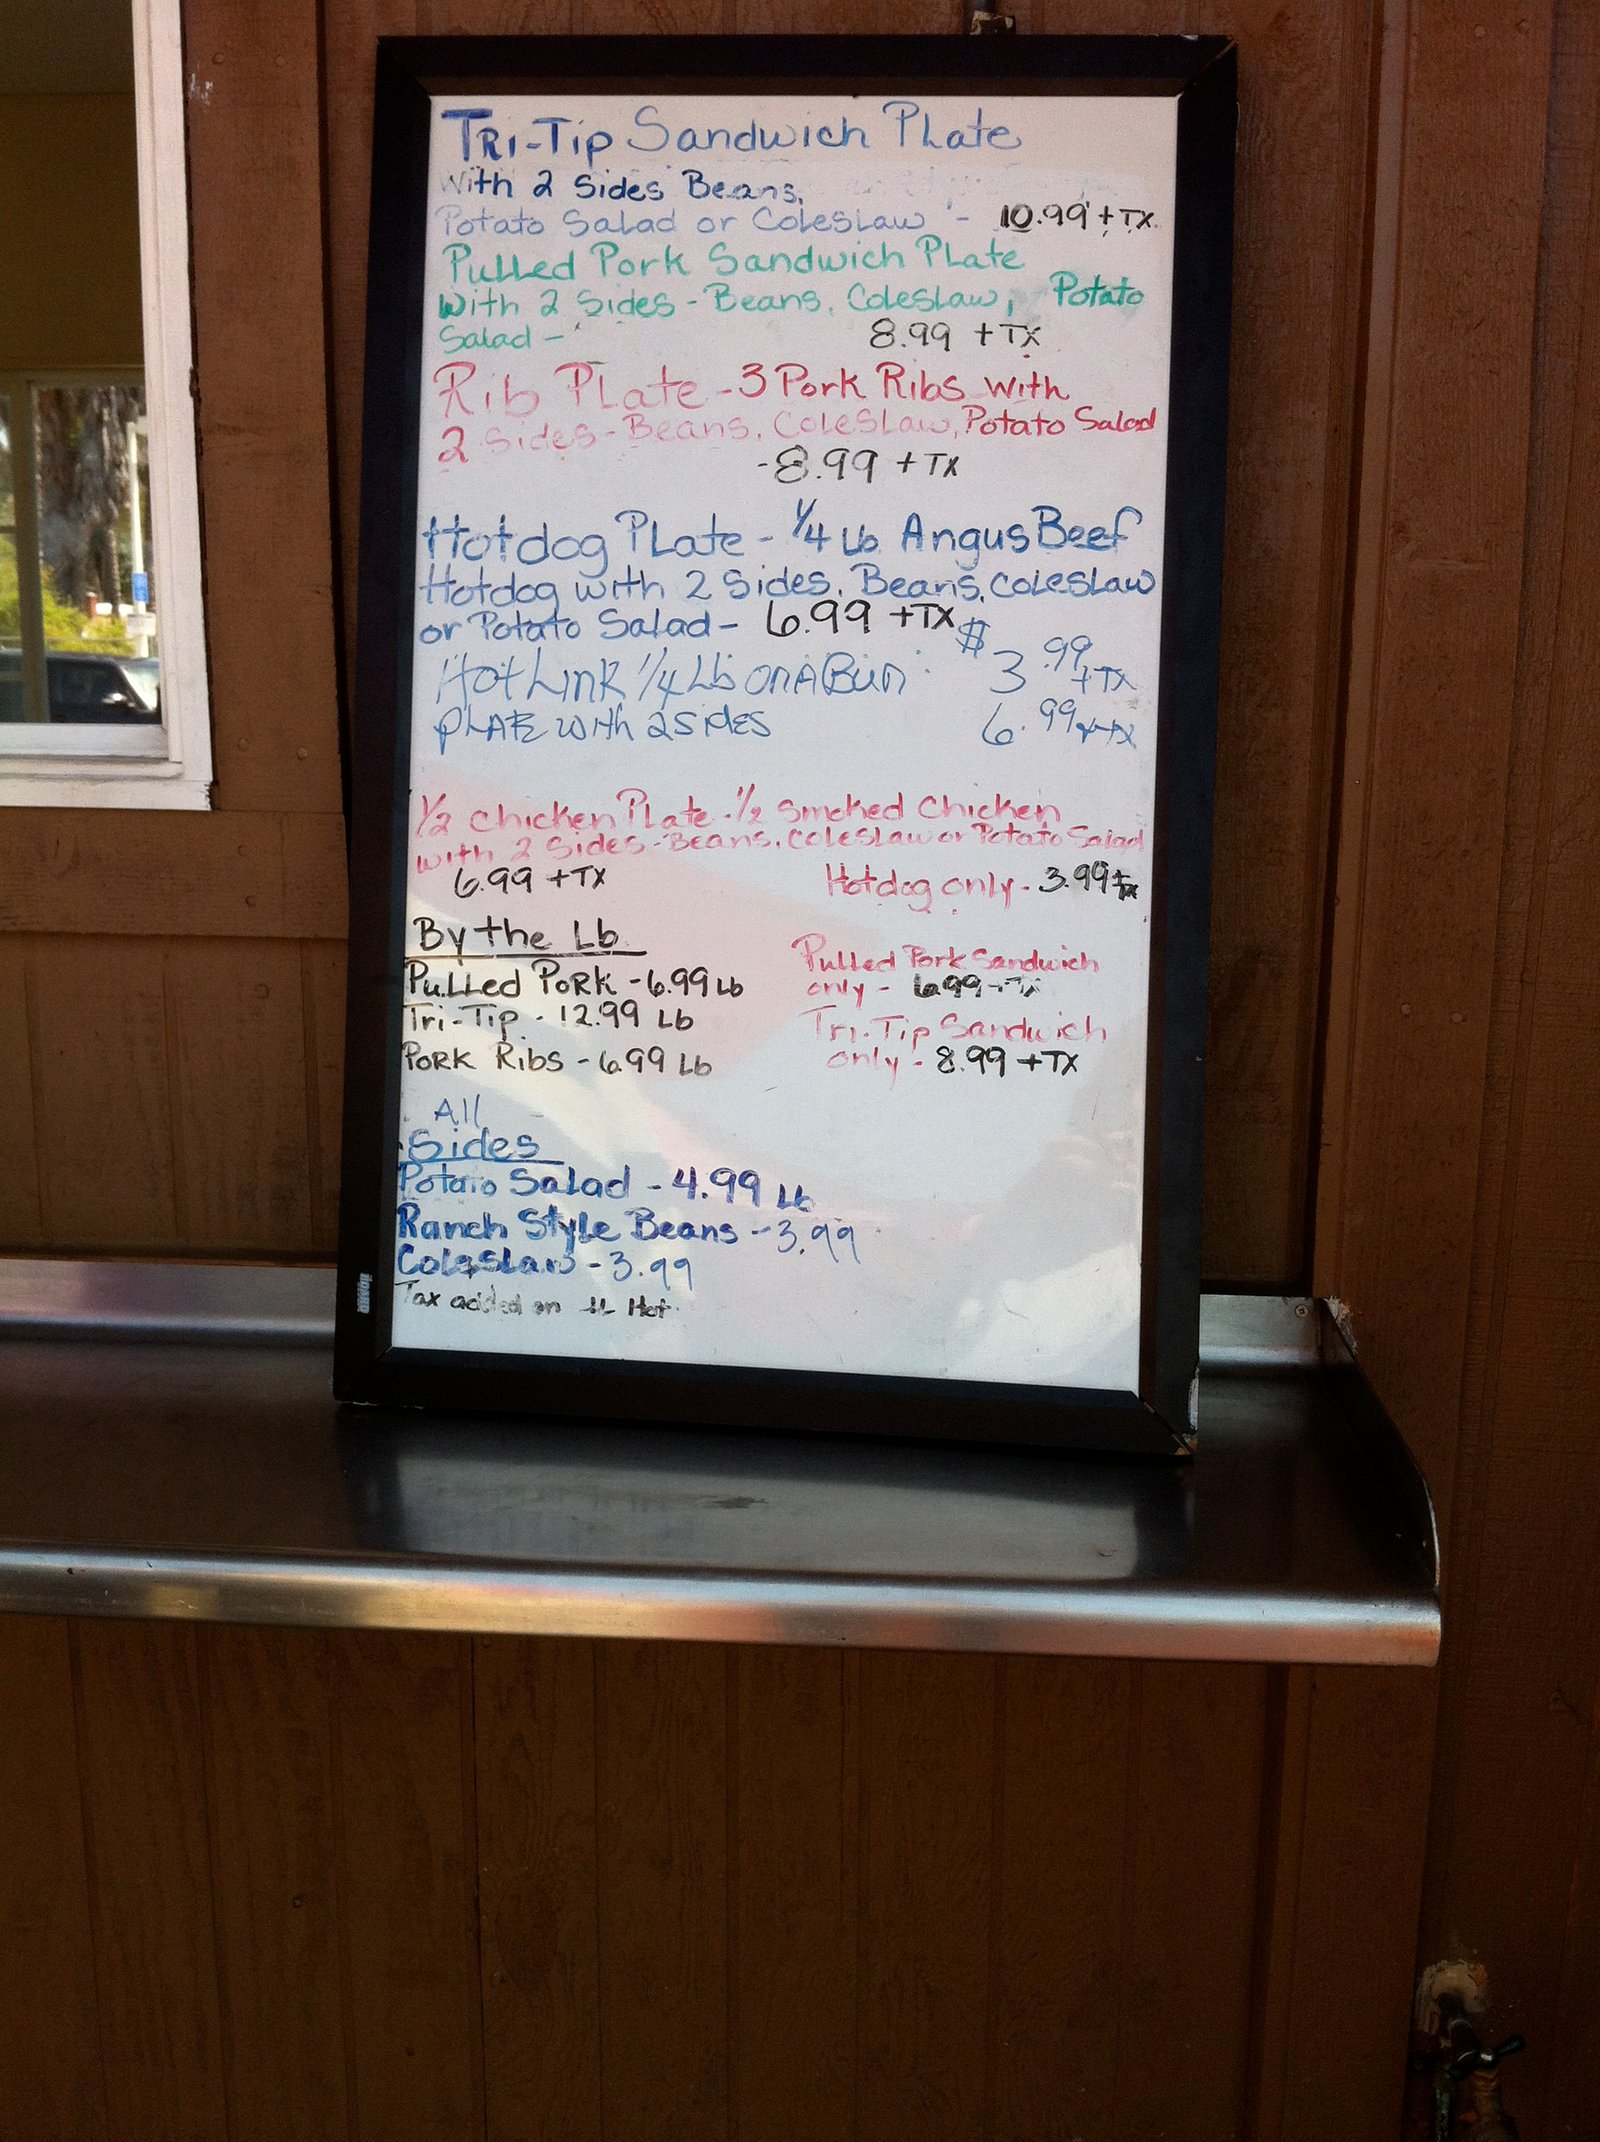 Tri-Tip Sandwich Plate
With 2 Sides Beans,
Potato Salad or Coleslaw - 10.99 + TX
Pulled Pork Sandwich Plate
With 2 Sides - Beans, Coleslaw, Potato
Salad - 8.99 + TX
Rib Plate - 3 Pork Ribs with
2 Sides - Beans, Coleslaw, Potato Salad
- 8.99 + TX
Hotdog Plate - 1/4 Lb Angus Beef
Hotdog with 2 Sides, Beans, Coleslaw
or Potato Salad - 6.99 + TX
Hot Link 1/4 Lb on A Bun $3.99 + TX
Plate with 2 Sides 6.99 + TX
1/2 Chicken Plate - 1/2 Smoked Chicken
with 2 Sides - Beans, Coleslaw or Potato Salad
6.99 + TX
Hotdog only - 3.99 + TX
By the Lb
Pulled Pork - 6.99 Lb
Tri-Tip - 12.99 Lb
Pork Ribs - 6.99 Lb
Pulled Pork Sandwich
only - 6.99 + TX
Tri-Tip Sandwich
only - 8.99 + TX
All
Sides
Potato Salad - 4.99 Lb
Ranch Style Beans - 3.99
Coleslaw - 3.99
Tax added on Hot